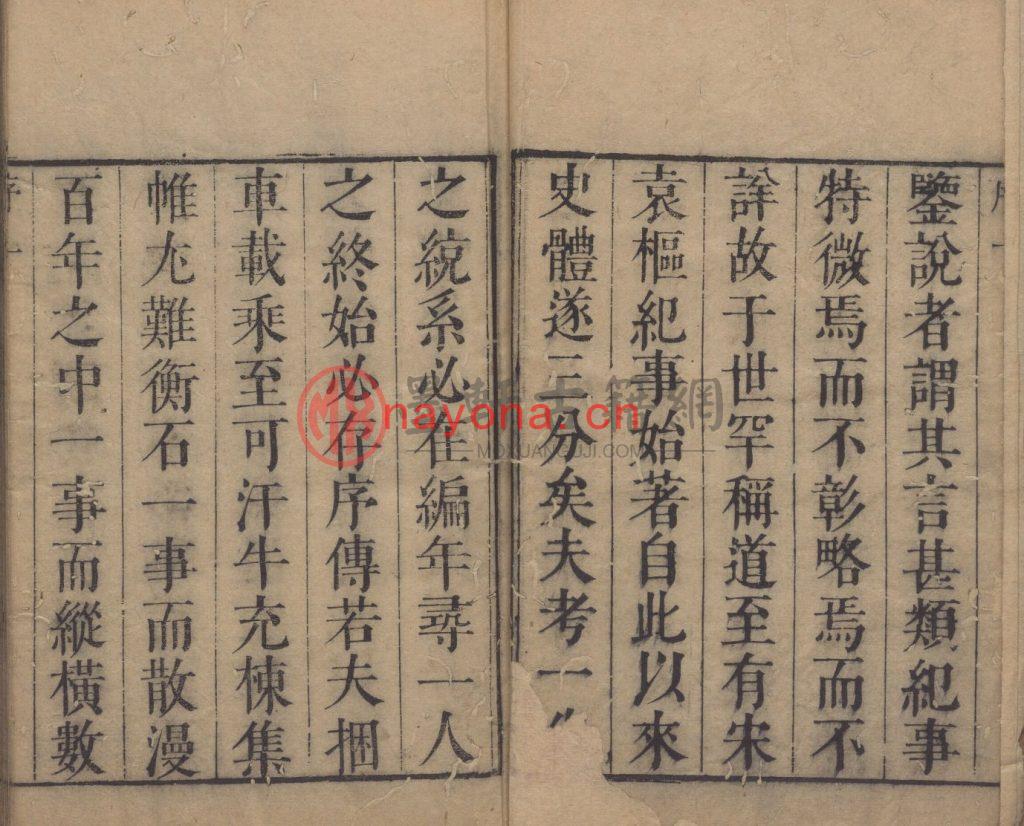 鑒說者謂其言甚類紀事
特微焉而不彰略焉而不
詳故于世罕稱道至有宋
袁樞紀事始著自此以來
史體遂三分矣夫考一
之統系必在編年尋一人
之終始必存序傳若夫捆
車載乘至可汗牛充棟集
帷尢難衡石一事而散漫
百年之中一事而縱橫數
墨軒古籍網
MOXUANGUJI.COM
nayona.cn